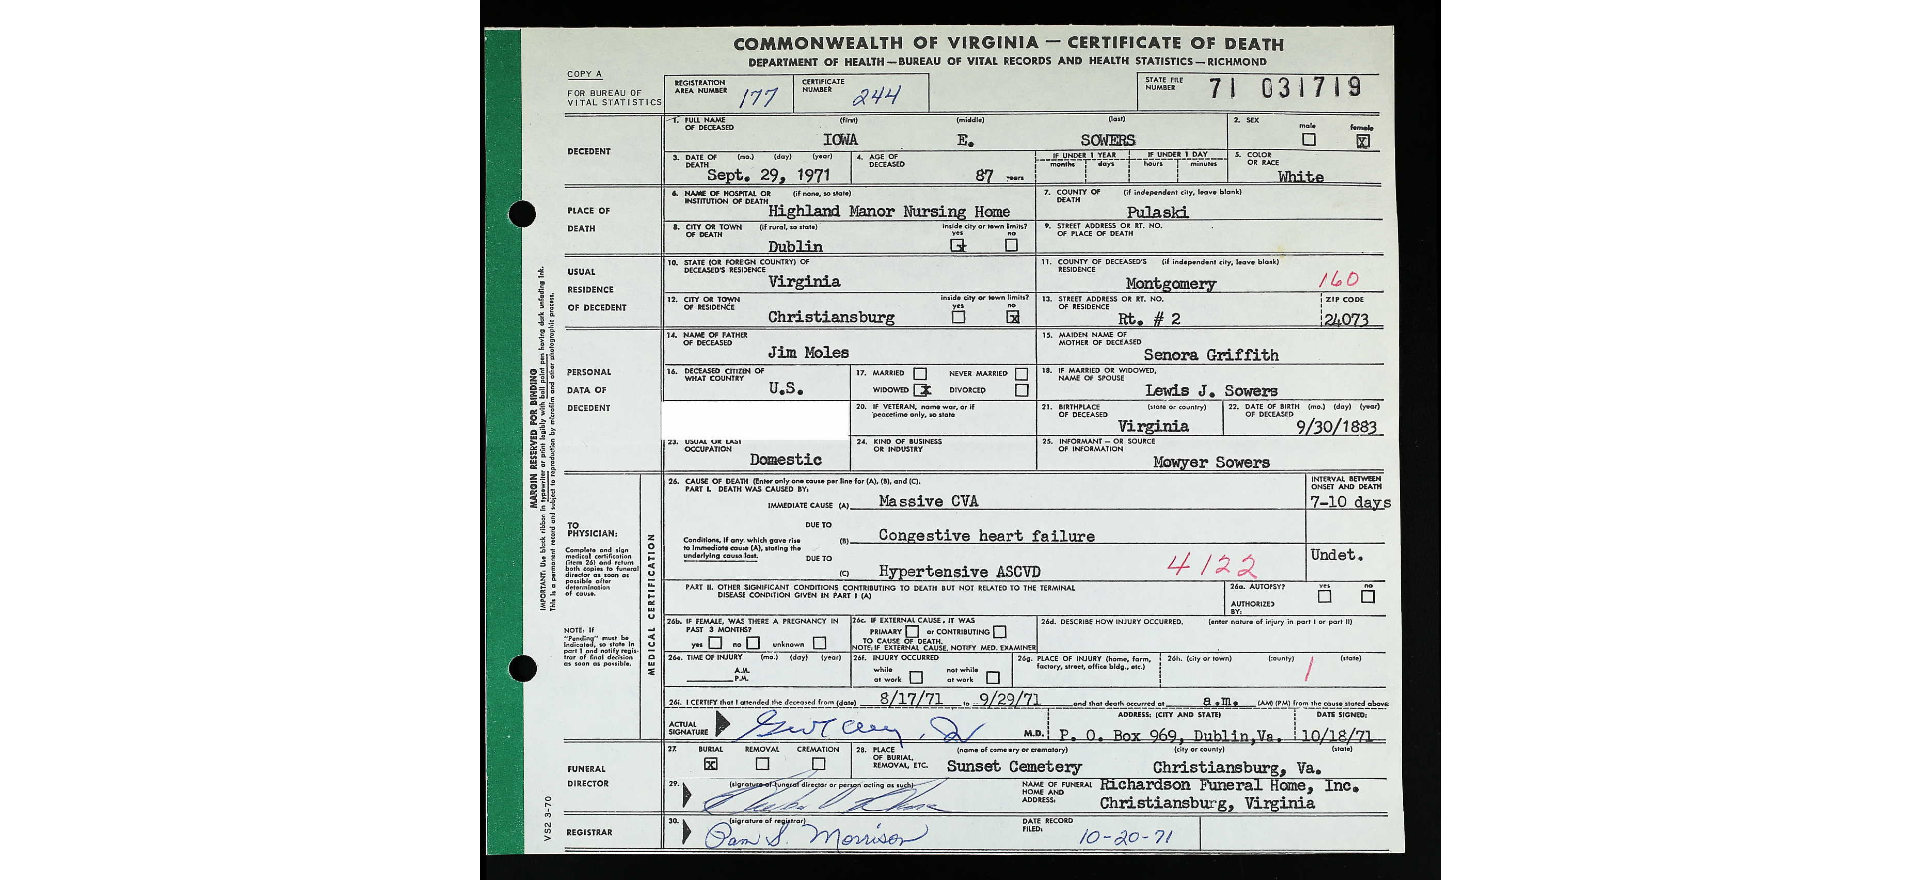 COMMONWEALTH OF VIRGINIA — CERTIFICATE OF DEATH
DEPARTMENT OF HEALTH—BUREAU OF VITAL RECORDS AND HEALTH STATISTICS—RICHMOND
COPY A
FOR BUREAU OF
VITAL STATISTICS
REGISTRATION
AREA NUMBER 177
CERTIFICATE
NUMBER 244
STATE FILE
NUMBER 71 031719
DECEDENT
1. FULL NAME (first) (middle) (last)
OF DECEASED
IOWA E. SOWERS
2. SEX male female X
3. DATE OF (mo.) (day) (year)
DEATH
Sept. 29, 1971
4. AGE OF
DECEASED
87 years
IF UNDER 1 YEAR IF UNDER 1 DAY
months days hours minutes
5. COLOR
OR RACE
White
PLACE OF
DEATH
6. NAME OF HOSPITAL OR (if none, so state)
INSTITUTION OF DEATH
Highland Manor Nursing Home
7. COUNTY OF (if independent city, leave blank)
DEATH
Pulaski
8. CITY OR TOWN (if rural, so state)
OF DEATH
Dublin
inside city or town limits?
yes no
x
9. STREET ADDRESS OR RT. NO.
OF PLACE OF DEATH
USUAL
RESIDENCE
OF DECEDENT
10. STATE (OR FOREIGN COUNTRY) OF
DECEASED'S RESIDENCE
Virginia
11. COUNTY OF DECEASED'S (if independent city, leave blank)
RESIDENCE
Montgomery 160
12. CITY OR TOWN
OF RESIDENCE
Christiansburg
inside city or town limits?
yes no
x
13. STREET ADDRESS OR RT. NO.
OF RESIDENCE
Rt. # 2
ZIP CODE
24073
PERSONAL
DATA OF
DECEDENT
14. NAME OF FATHER
OF DECEASED
Jim Moles
15. MAIDEN NAME OF
MOTHER OF DECEASED
Senora Griffith
16. DECEASED CITIZEN OF
WHAT COUNTRY
U.S.
17. MARRIED NEVER MARRIED
WIDOWED x DIVORCED
18. IF MARRIED OR WIDOWED,
NAME OF SPOUSE
Lewis J. Sowers
20. IF VETERAN, name war, or if
peacetime only, so state
21. BIRTHPLACE (state or country)
OF DECEASED
Virginia
22. DATE OF BIRTH (mo.) (day) (year)
OF DECEASED
9/30/1883
23. USUAL OR LAST
OCCUPATION
Domestic
24. KIND OF BUSINESS
OR INDUSTRY
25. INFORMANT — OR SOURCE
OF INFORMATION
Mowyer Sowers
MARGIN RESERVED FOR BINDING
IMPORTANT: Use black ribbon in typewriter or print legibly with ball point pen having dark unfading ink.
This is a permanent record and subject to reproduction by microfilm and other photographic process.
TO
PHYSICIAN:
Complete and sign
medical certification
(item 26) and return
both copies to funeral
director as soon as
possible after
determination
of cause.
NOTE: If
"Pending" must be
indicated, so state in
part I and notify regis-
trar of final decision
as soon as possible.
MEDICAL CERTIFICATION
26. CAUSE OF DEATH (Enter only one cause per line for (A), (B), and (C).
PART I. DEATH WAS CAUSED BY:
INTERVAL BETWEEN
ONSET AND DEATH
IMMEDIATE CAUSE (A) Massive CVA 7-10 days
DUE TO
Conditions, if any, which gave rise
to immediate cause (A), stating the
underlying cause last.
(B) Congestive heart failure
DUE TO
Undet.
(C) Hypertensive ASCVD 4122
PART II. OTHER SIGNIFICANT CONDITIONS CONTRIBUTING TO DEATH BUT NOT RELATED TO THE TERMINAL
DISEASE CONDITION GIVEN IN PART I (A)
26a. AUTOPSY? yes no
AUTHORIZED
BY:
26b. IF FEMALE, WAS THERE A PREGNANCY IN
PAST 3 MONTHS?
yes no unknown
26c. IF EXTERNAL CAUSE, IT WAS
PRIMARY or CONTRIBUTING
TO CAUSE OF DEATH.
NOTE: IF EXTERNAL CAUSE, NOTIFY MED. EXAMINER
26d. DESCRIBE HOW INJURY OCCURRED. (enter nature of injury in part I or part II)
26e. TIME OF INJURY (mo.) (day) (year)
A.M.
P.M.
26f. INJURY OCCURRED
while not while
at work at work
26g. PLACE OF INJURY (home, farm,
factory, street, office bldg., etc.)
26h. (city or town) (county) (state)
1
26i. I CERTIFY that I attended the deceased from (date) 8/17/71 to 9/29/71 and that death occurred at a.m. (AM) (PM) from the cause stated above
ACTUAL
SIGNATURE
M.D.
ADDRESS: (CITY AND STATE)
P. O. Box 969, Dublin, Va.
DATE SIGNED:
10/18/71
FUNERAL
DIRECTOR
27. BURIAL REMOVAL CREMATION
x
28. PLACE (name of cemetery or crematory) (city or county) (state)
OF BURIAL,
REMOVAL, ETC.
Sunset Cemetery Christiansburg, Va.
29. (signature of funeral director or person acting as such)
NAME OF FUNERAL
HOME AND
ADDRESS:
Richardson Funeral Home, Inc.
Christiansburg, Virginia
REGISTRAR
30. (signature of registrar)
Pam S. Morrison
DATE RECORD
FILED:
10-20-71
VS2 3-70